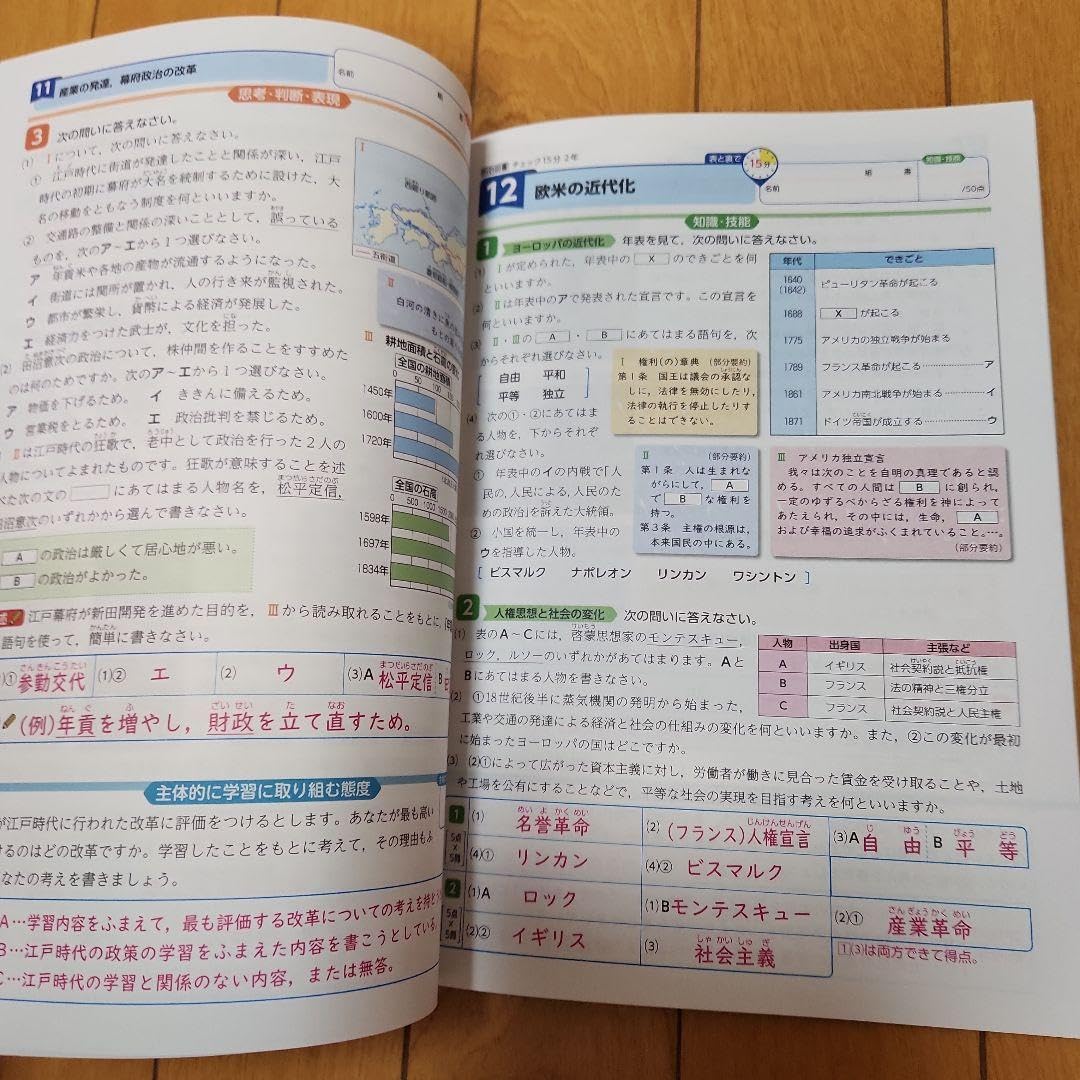 11 産業の発達，幕府政治の改革
名前
組
思考・判断・表現
3 次の問いに答えなさい。
(1) Ⅰについて，次の問いに答えなさい。
① 江戸時代に街道が発達したことと関係が深い，江戸
時代の初期に幕府が大名を統制するために設けた，大
名の移動をともなう制度を何といいますか。
② 交通路の整備と関係の深いこととして，誤っている
ものを，次のア～エから1つ選びなさい。
ア 年貢米や各地の産物が流通するようになった。
イ 街道には関所が置かれ，人の行き来が監視された。
ウ 都市が繁栄し，貨幣による経済が発展した。
エ 経済力をつけた武士が，文化を担った。
(2) 田沼意次の政治について，株仲間を作ることをすすめた
のは何のためですか。次のア～エから1つ選びなさい。
ア 物価を下げるため。 イ ききんに備えるため。
ウ 営業税をとるため。 エ 政治批判を禁じるため。
Ⅱは江戸時代の狂歌で，老中として政治を行った2人の
人物についてよまれたものです。狂歌が意味することを述
べた次の文の にあてはまる人物名を，松平定信，
田沼意次のいずれかから選んで書きなさい。
A の政治は厳しくて居心地が悪い。
B の政治がよかった。
江戸幕府が新田開発を進めた目的を，Ⅲから読み取れることをもとに，
語句を使って，簡単に書きなさい。
Ⅰ
西廻り航路
五街道
Ⅱ
白河の清きに
もとの
Ⅲ 耕地面積と石高の
全国の耕地面積
0 50 100
1450年
1600年
1720年
全国の石高
0 500 1000
1598年
1697年
1834年
① 参勤交代 (1)② エ (2) ウ (3)A 松平定信 B
(例)年貢を増やし，財政を立て直すため。
主体的に学習に取り組む態度
が江戸時代に行われた改革に評価をつけるとします。あなたが最も高い
けるのはどの改革ですか。学習したことをもとに考えて，その理由もふ
なたの考えを書きましょう。
A…学習内容をふまえて，最も評価する改革についての考えを持とう
B…江戸時代の政策の学習をふまえた内容を書こうとしている
C…江戸時代の学習と関係のない内容，または無答。
チェック15分 2年
表と裏で 15分
12 欧米の近代化
名前
組
知識・技能
/50点
知識・技能
1 ヨーロッパの近代化 年表を見て，次の問いに答えなさい。
(1) Ⅰが定められた，年表中の X のできごとを何
といいますか。
(2) Ⅱは年表中のアで発表された宣言です。この宣言を
何といいますか。
(3) Ⅱ・Ⅲの A ・ B にあてはまる語句を，次
からそれぞれ選びなさい。
自由 平和
平等 独立
(4) 次の①・②にあてはま
る人物を，下からそれぞ
れ選びなさい。
① 年表中のイの内戦で「人
民の，人民による，人民のた
めの政治」を訴えた大統領。
② 小国を統一し，年表中の
ウを指導した人物。
[ ビスマルク ナポレオン リンカン ワシントン ]
年代 できごと
1640 (1642) ピューリタン革命が起こる
1688 X が起こる
1775 アメリカの独立戦争が始まる
1789 フランス革命が起こる…………ア
1861 アメリカ南北戦争が始まる……イ
1871 ドイツ帝国が成立する…………ウ
Ⅰ 権利(の)章典 (部分要約)
第1条 国王は議会の承認な
しに，法律を無効にしたり，
法律の執行を停止したりす
ることはできない。
Ⅱ (部分要約)
第1条 人は生まれな
がらにして， A
で B な権利を
持つ。
第3条 主権の根源は，
本来国民の中にある。
Ⅲ アメリカ独立宣言
我々は次のことを自明の真理であると認
める。すべての人間は B に創られ，
一定のゆずるべからざる権利を神によって
あたえられ，その中には，生命， A
および幸福の追求がふくまれていること。…。
(部分要約)
2 人権思想と社会の変化 次の問いに答えなさい。
(1) 表のA～Cには，啓蒙思想家のモンテスキュー，
ロック，ルソーのいずれかがあてはまります。Aと
Bにあてはまる人物を書きなさい。
(2) ①18世紀後半に蒸気機関の発明から始まった，
工業や交通の発達による経済と社会の仕組みの変化を何といいますか。また，②この変化が最初
に始まったヨーロッパの国はどこですか。
(3) (2)①によって広がった資本主義に対し，労働者が働きに見合った賃金を受け取ることや，土地
や工場を公有にすることなどで，平等な社会の実現を目指す考えを何といいますか。
人物 出身国 主張など
A イギリス 社会契約説と抵抗権
B フランス 法の精神と三権分立
C フランス 社会契約説と人民主権
1 (1) 名誉革命 (2) (フランス)人権宣言 (3)A 自由 B 平等
5点×5問 (4)① リンカン (4)② ビスマルク
2 (1)A ロック (1)B モンテスキュー (2)① 産業革命
5点×5問 (2)② イギリス (3) 社会主義
1(3)は両方できて得点。